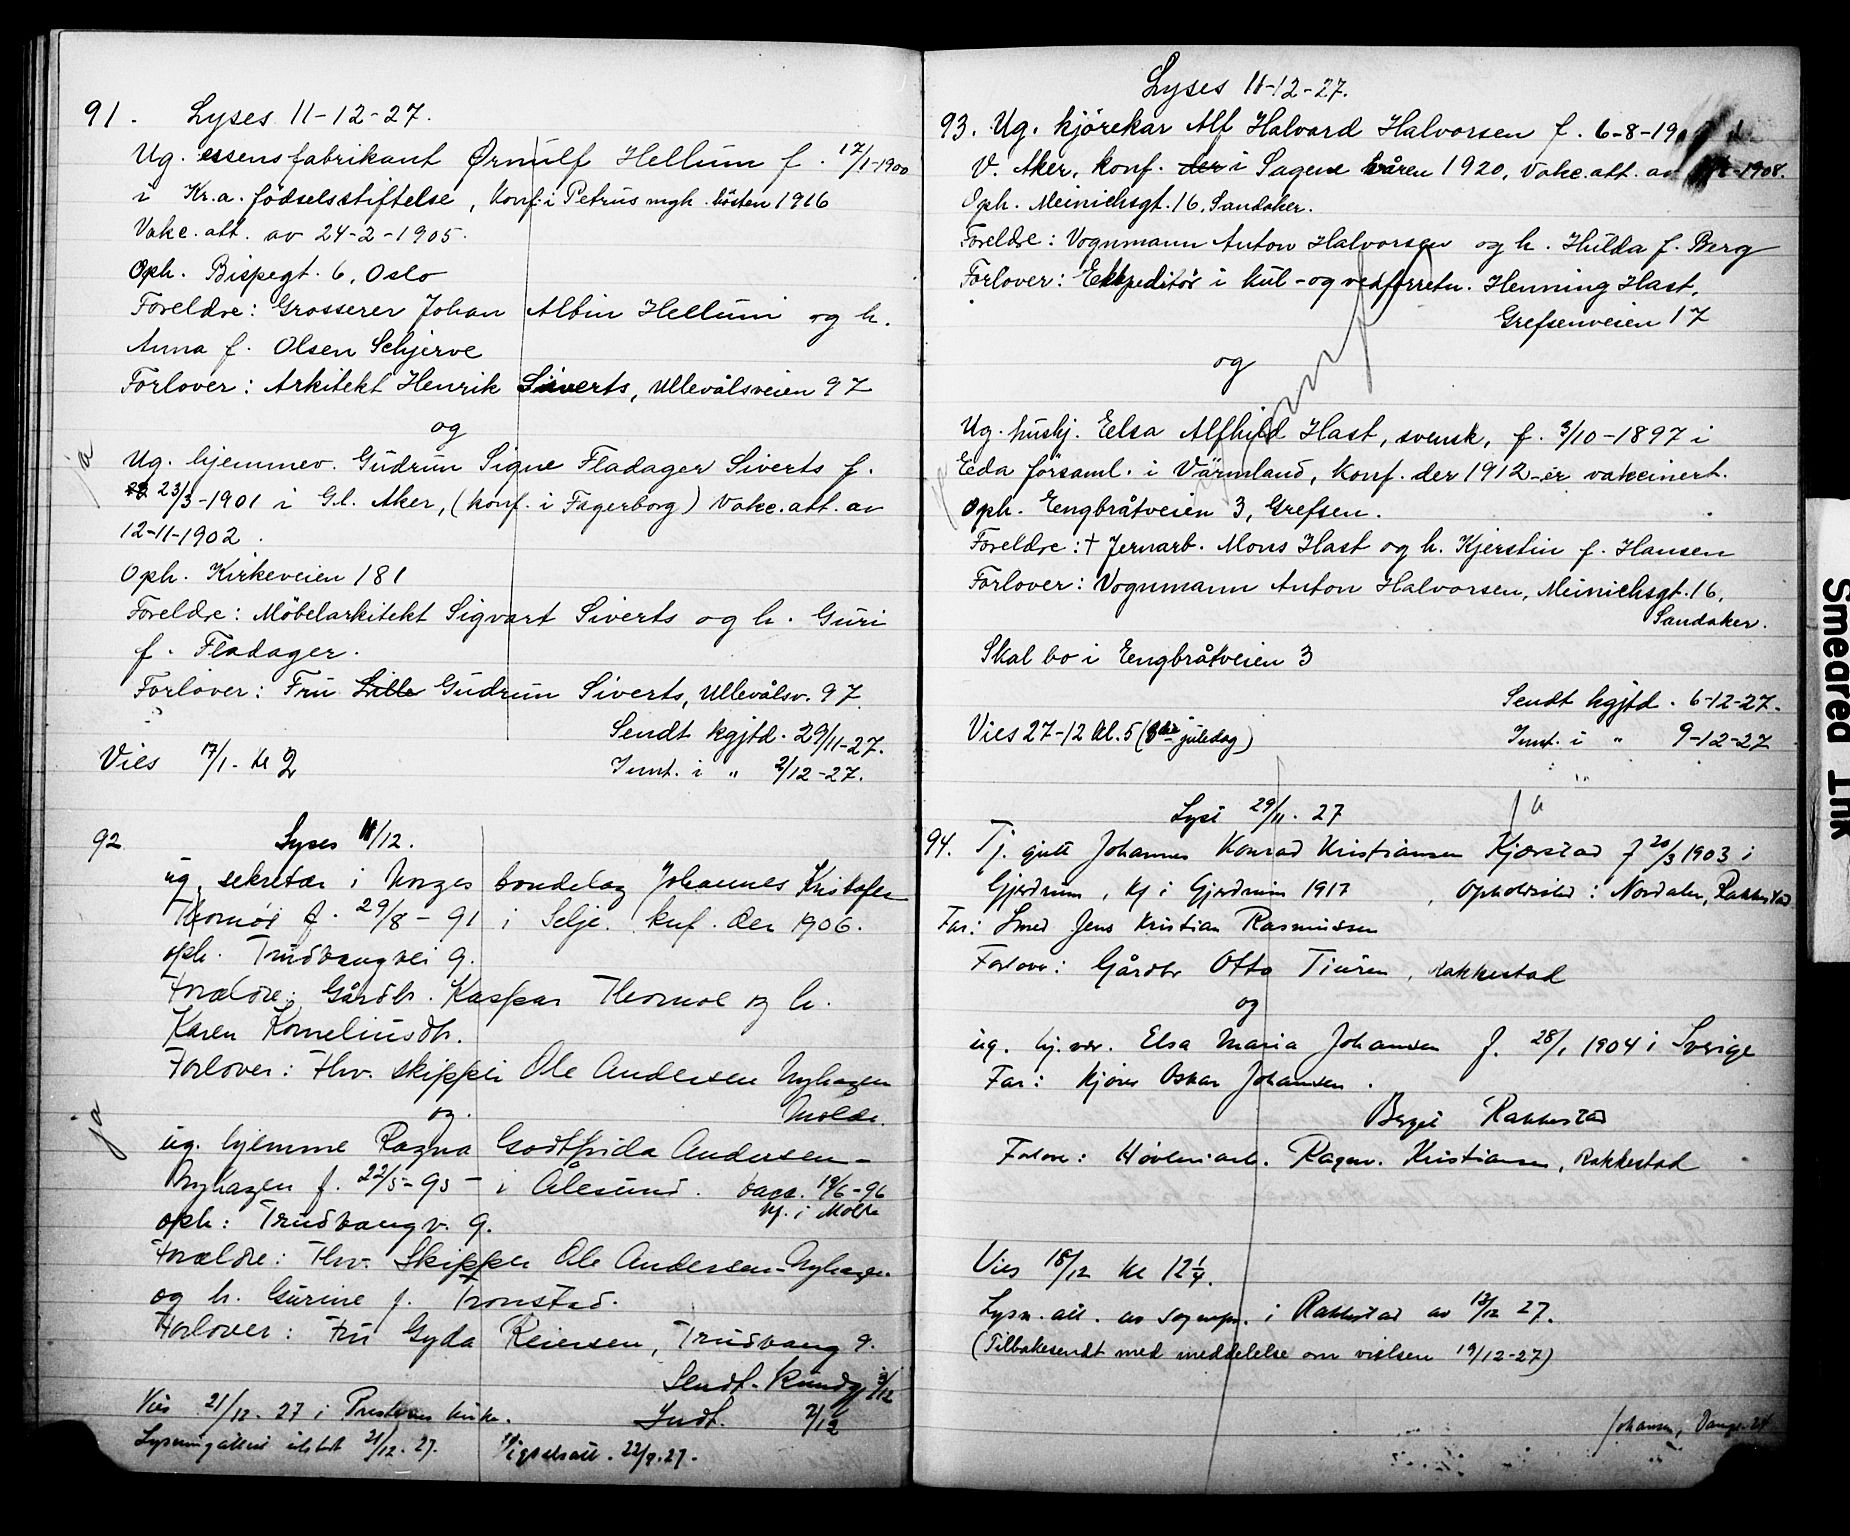 91. Lyses 11-12-27.
Ug. essensfabrikant Ørnulf Hellum f. 17/1-1900
i Kr.a. födselsstiftelse, konf. i Petrus mgh. hösten 1916
Vakc. att. av 24-2-1905.
Oph. Bispegt. 6, Oslo
Foreldre: Grosserer Johan Albin Hellum og h.
Anna f. Olsen Schjerve
Forlover: Arkitekt Henrik Siverts, Ullevålsveien 97
og
ja
Ug. hjemmev. Gudrun Signe Fladager Siverts f.
23/3-1901 i Gl. Aker, (konf. i Fagerborg) Vakc. att. av
12-11-1902.
Oph. Kirkeveien 181
Foreldre: Möbelarkitekt Sigvart Siverts og h. Guri
f. Fladager.
Forlover: Fru Lille Gudrun Siverts, Ullevålsv. 97.
Sendt kgjtd. 29/11-27.
Vies 17/1. kl 2
Innt. i " 2/12-27.
92. Lyses 11/12.
ug. sekretær i Norges bondelag Johannes Kristofer
Thomøe f. 29/8-91 i Selje. knf. der 1906.
oph. Trudvangvei 9.
Forældre: Gårdbr. Kaspar Thomøe og h.
Karen Korneliusdtr.
Forlover: Fhv. skipper Ole Andersen Nyhagen
og. Molde.
ja
ug. hjemme Ragna Godtfrida Andersen-
Nyhagen f. 22/5-95 i Ålesund. vacc. 19/6-96
kf. i Molde
oph: Trudvangv. 9.
Forældre: Fhv. Skipper Ole Andersen-Nyhagen
og h. Gurine f. Tronstad.
Forlover: Fru Gyda Reiersen, Trudvang 9.
Sendt. Kundgj 3/12
Vies 21/12-27 i kirke.
Indt. 7/12
Lysningsattest utstedt 21/12.27. Vigselsatt. 22/9.27.
Lyses 11-12-27.
93. Ug. kjörekar Alf Halvard Halvorsen f. 6-8-19
V. Aker, konf. der i Sagene våren 1920, Vakc. att. av -1908.
Oph. Meinichsgt. 16, Sandaker.
Foreldre: Vognmann Anton Halvorsen og h. Hulda f. Berg
Forlover: Ekspeditör i kul- og vedforretn. Henning Hast,
Grefsenveien 17
og
Ug. hushj. Elsa Alfhild Hast, svensk, f. 3/10-1897 i
Eda församl. i Värmland, konf. der 1912 - er vakcinert.
Oph. Engbråtveien 3, Grefsen.
Foreldre: † Jernarb. Mons Hast og h. Kjerstin f. Hansen
Forlover: Vognmann Anton Halvorsen, Meinichsgt. 16,
Sandaker.
Skal bo i Engbråtveien 3
Sendt kgjtd. 6-12-27.
Vies 27-12 kl. 5 (3dje juledag)
Innt. i " 9-12-27
ja
Lyst 29/11. 27
94. Tj. gutt Johannes Konrad Kristiansen Kjærstad f 20/3 1903 i
Gjerdrum, kf i Gjerdrum 1917, Opholdssted: Nordalen, Rakkestad
Far: Smed Jens Kristian Rasmussen
Forlover: Gårdbr Otto Tiuren, Rakkestad
og
ug. hj.vær. Elsa Maria Johansen f. 28/1 1904 i Sverige
Far: Kjører Oskar Johansen.
Rakkestad
Forlover: Høvleriarb. Ragnv. Kristiansen, Rakkestad
Vies 18/12 kl 12 1/4.
Lysn. att. av sognepr. i Rakkestad av 13/12 27.
(Tilbakesendt med meddelelse om vielsen 19/12-27)
Smeared Ink